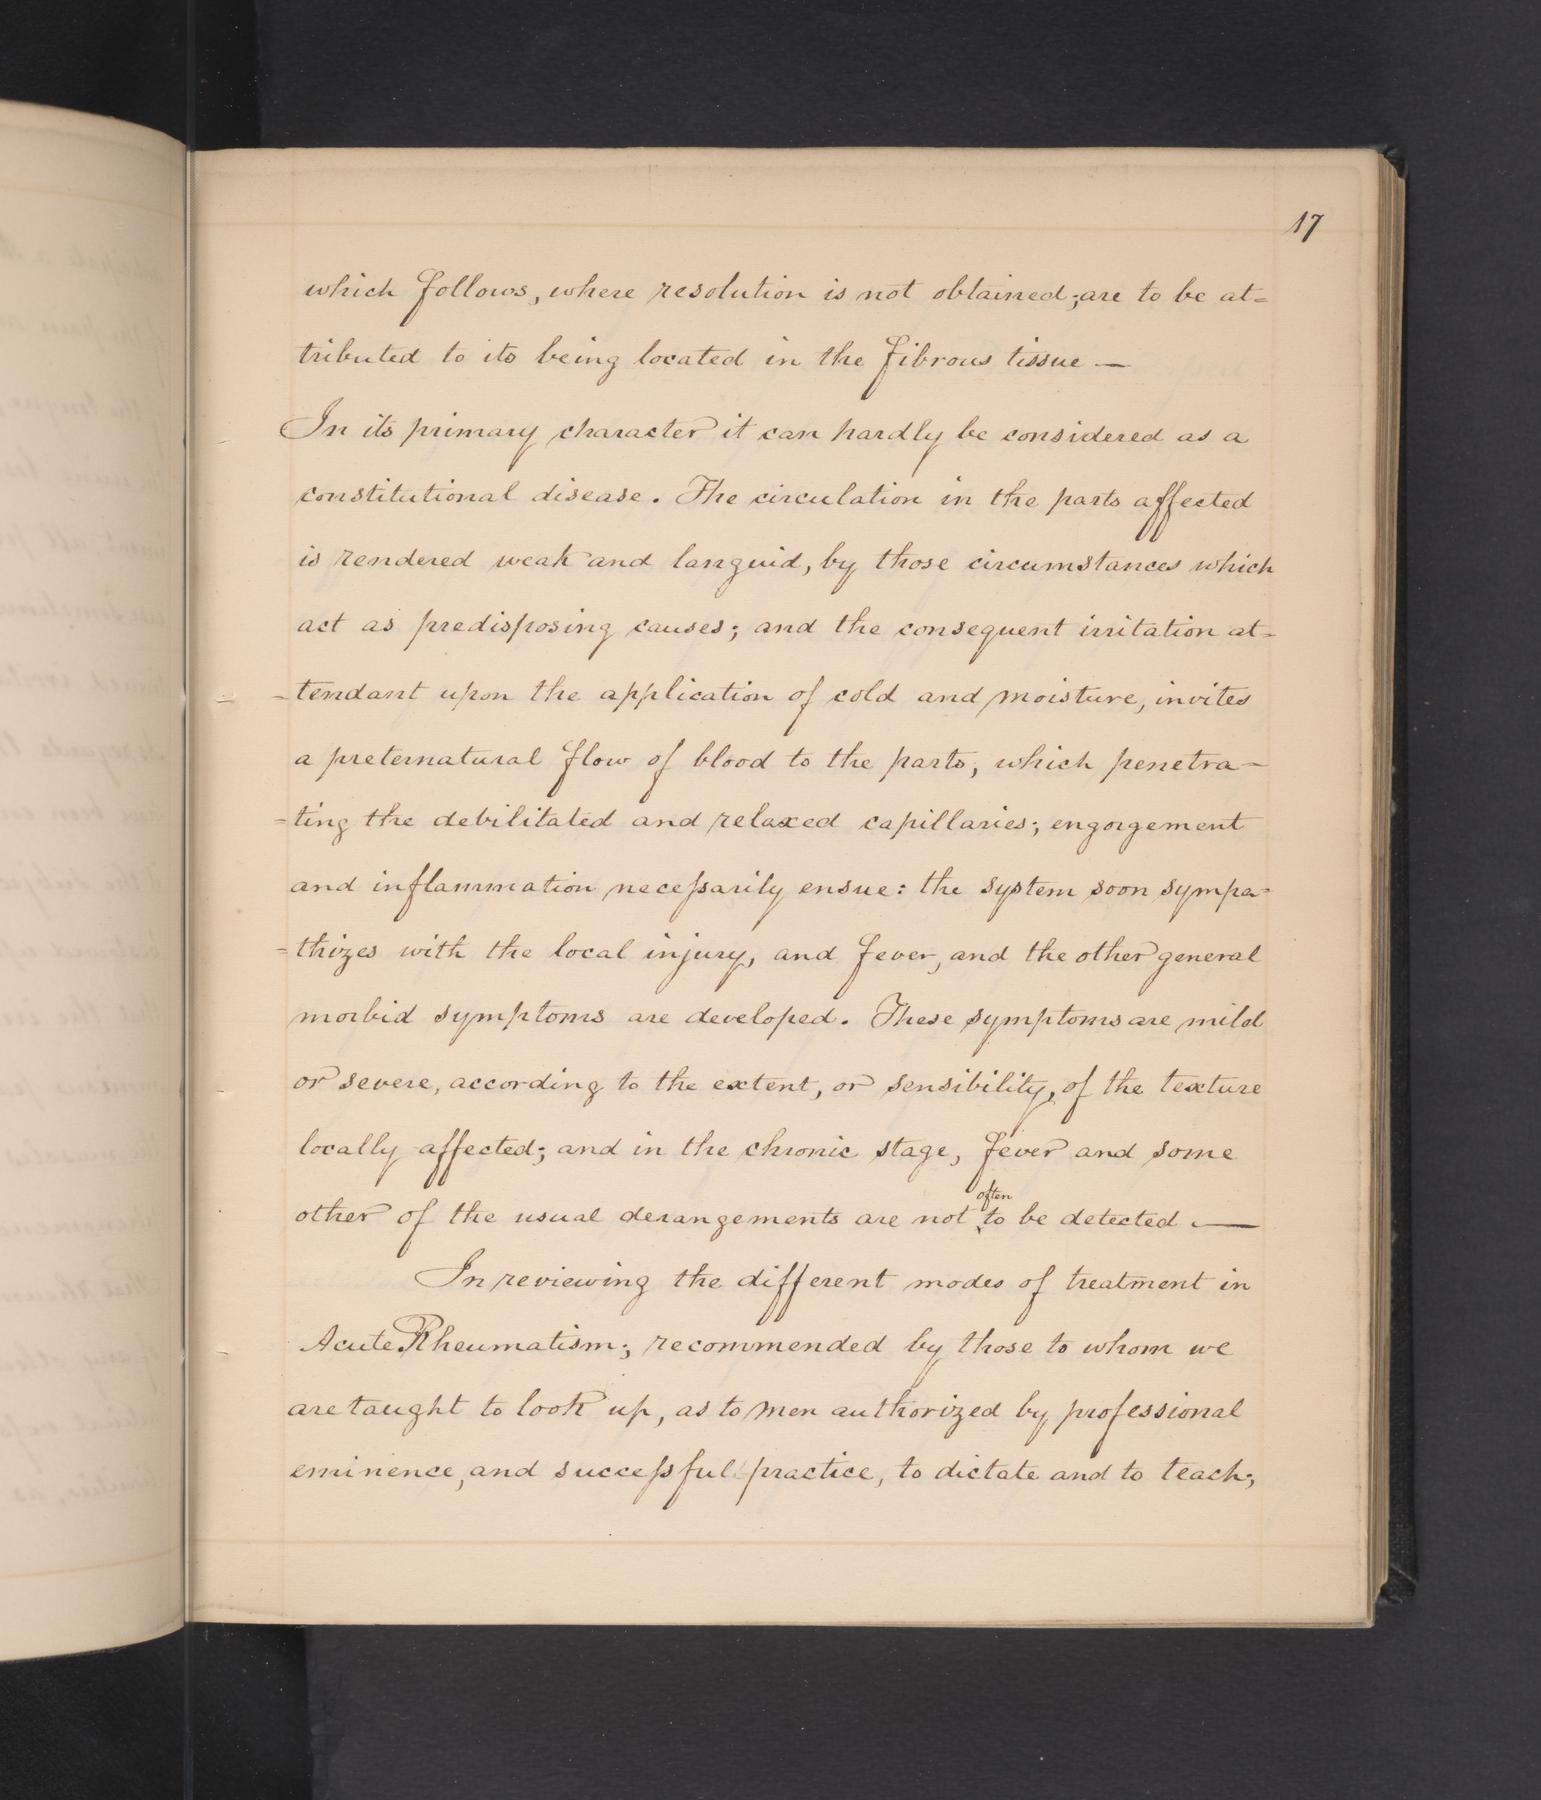 17
which follows, where resolution is not obtained; are to be at=
tributed to its being located in the fibrous tissue —
In its primary character it can hardly be considered as a
constitutional disease. The circulation in the parts affected
is rendered weak and languid, by those circumstances which
act as predisposing causes; and the consequent irritation at=
=tendant upon the application of cold and moisture, invites
a preternatural flow of blood to the parts, which penetra=
=ting the debilitated and relaxed capillaries; engorgement
and inflammation necessarily ensue: the system soon sympa=
=thizes with the local injury, and fever, and the other general
morbid symptoms are developed. These symptoms are mild
or severe, according to the extent, or sensibility, of the texture
locally affected; and in the chronic stage, fever and some
often
other of the usual derangements are not to be detected —
In reviewing the different modes of treatment in
Acute Rheumatism; recommended by those to whom we
are taught to look up, as to men authorized by professional
eminence, and successful practice, to dictate and to teach;